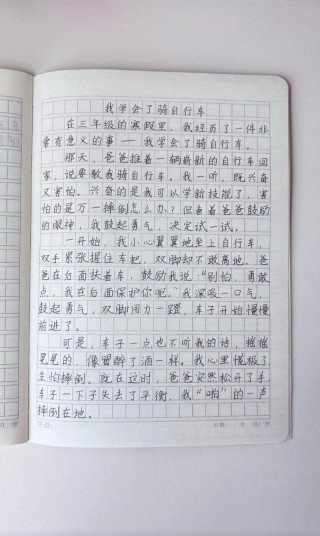 我学会了骑自行车
在三年级的寒假里，我经历了一件非
常有意义的事——我学会了骑自行车。
那天，爸爸推着一辆崭新的自行车回
家，说要教我骑自行车。我一听，既兴奋
又害怕。兴奋的是我可以学新技能了，害
怕的是万一摔倒怎么办？但看着爸爸鼓励
的眼神，我鼓起勇气，决定试一试。
一开始，我小心翼翼地坐上自行车，
双手紧张握住车把，双脚却不敢离地。爸
爸在后面扶着车，鼓励我说：“别怕，勇敢
点，我在后面保护你吧。”我深吸一口气，
鼓起勇气，双脚用力一蹬，车子开始慢慢
前进了。
可是，车子一点也不听我的话，摇摇
晃晃的，像喝醉了酒一样。我心里慌极了，
生怕摔倒。就在这时，爸爸突然松开了手，
车子一下子失去了平衡，我“啪”的一声
摔倒在地。